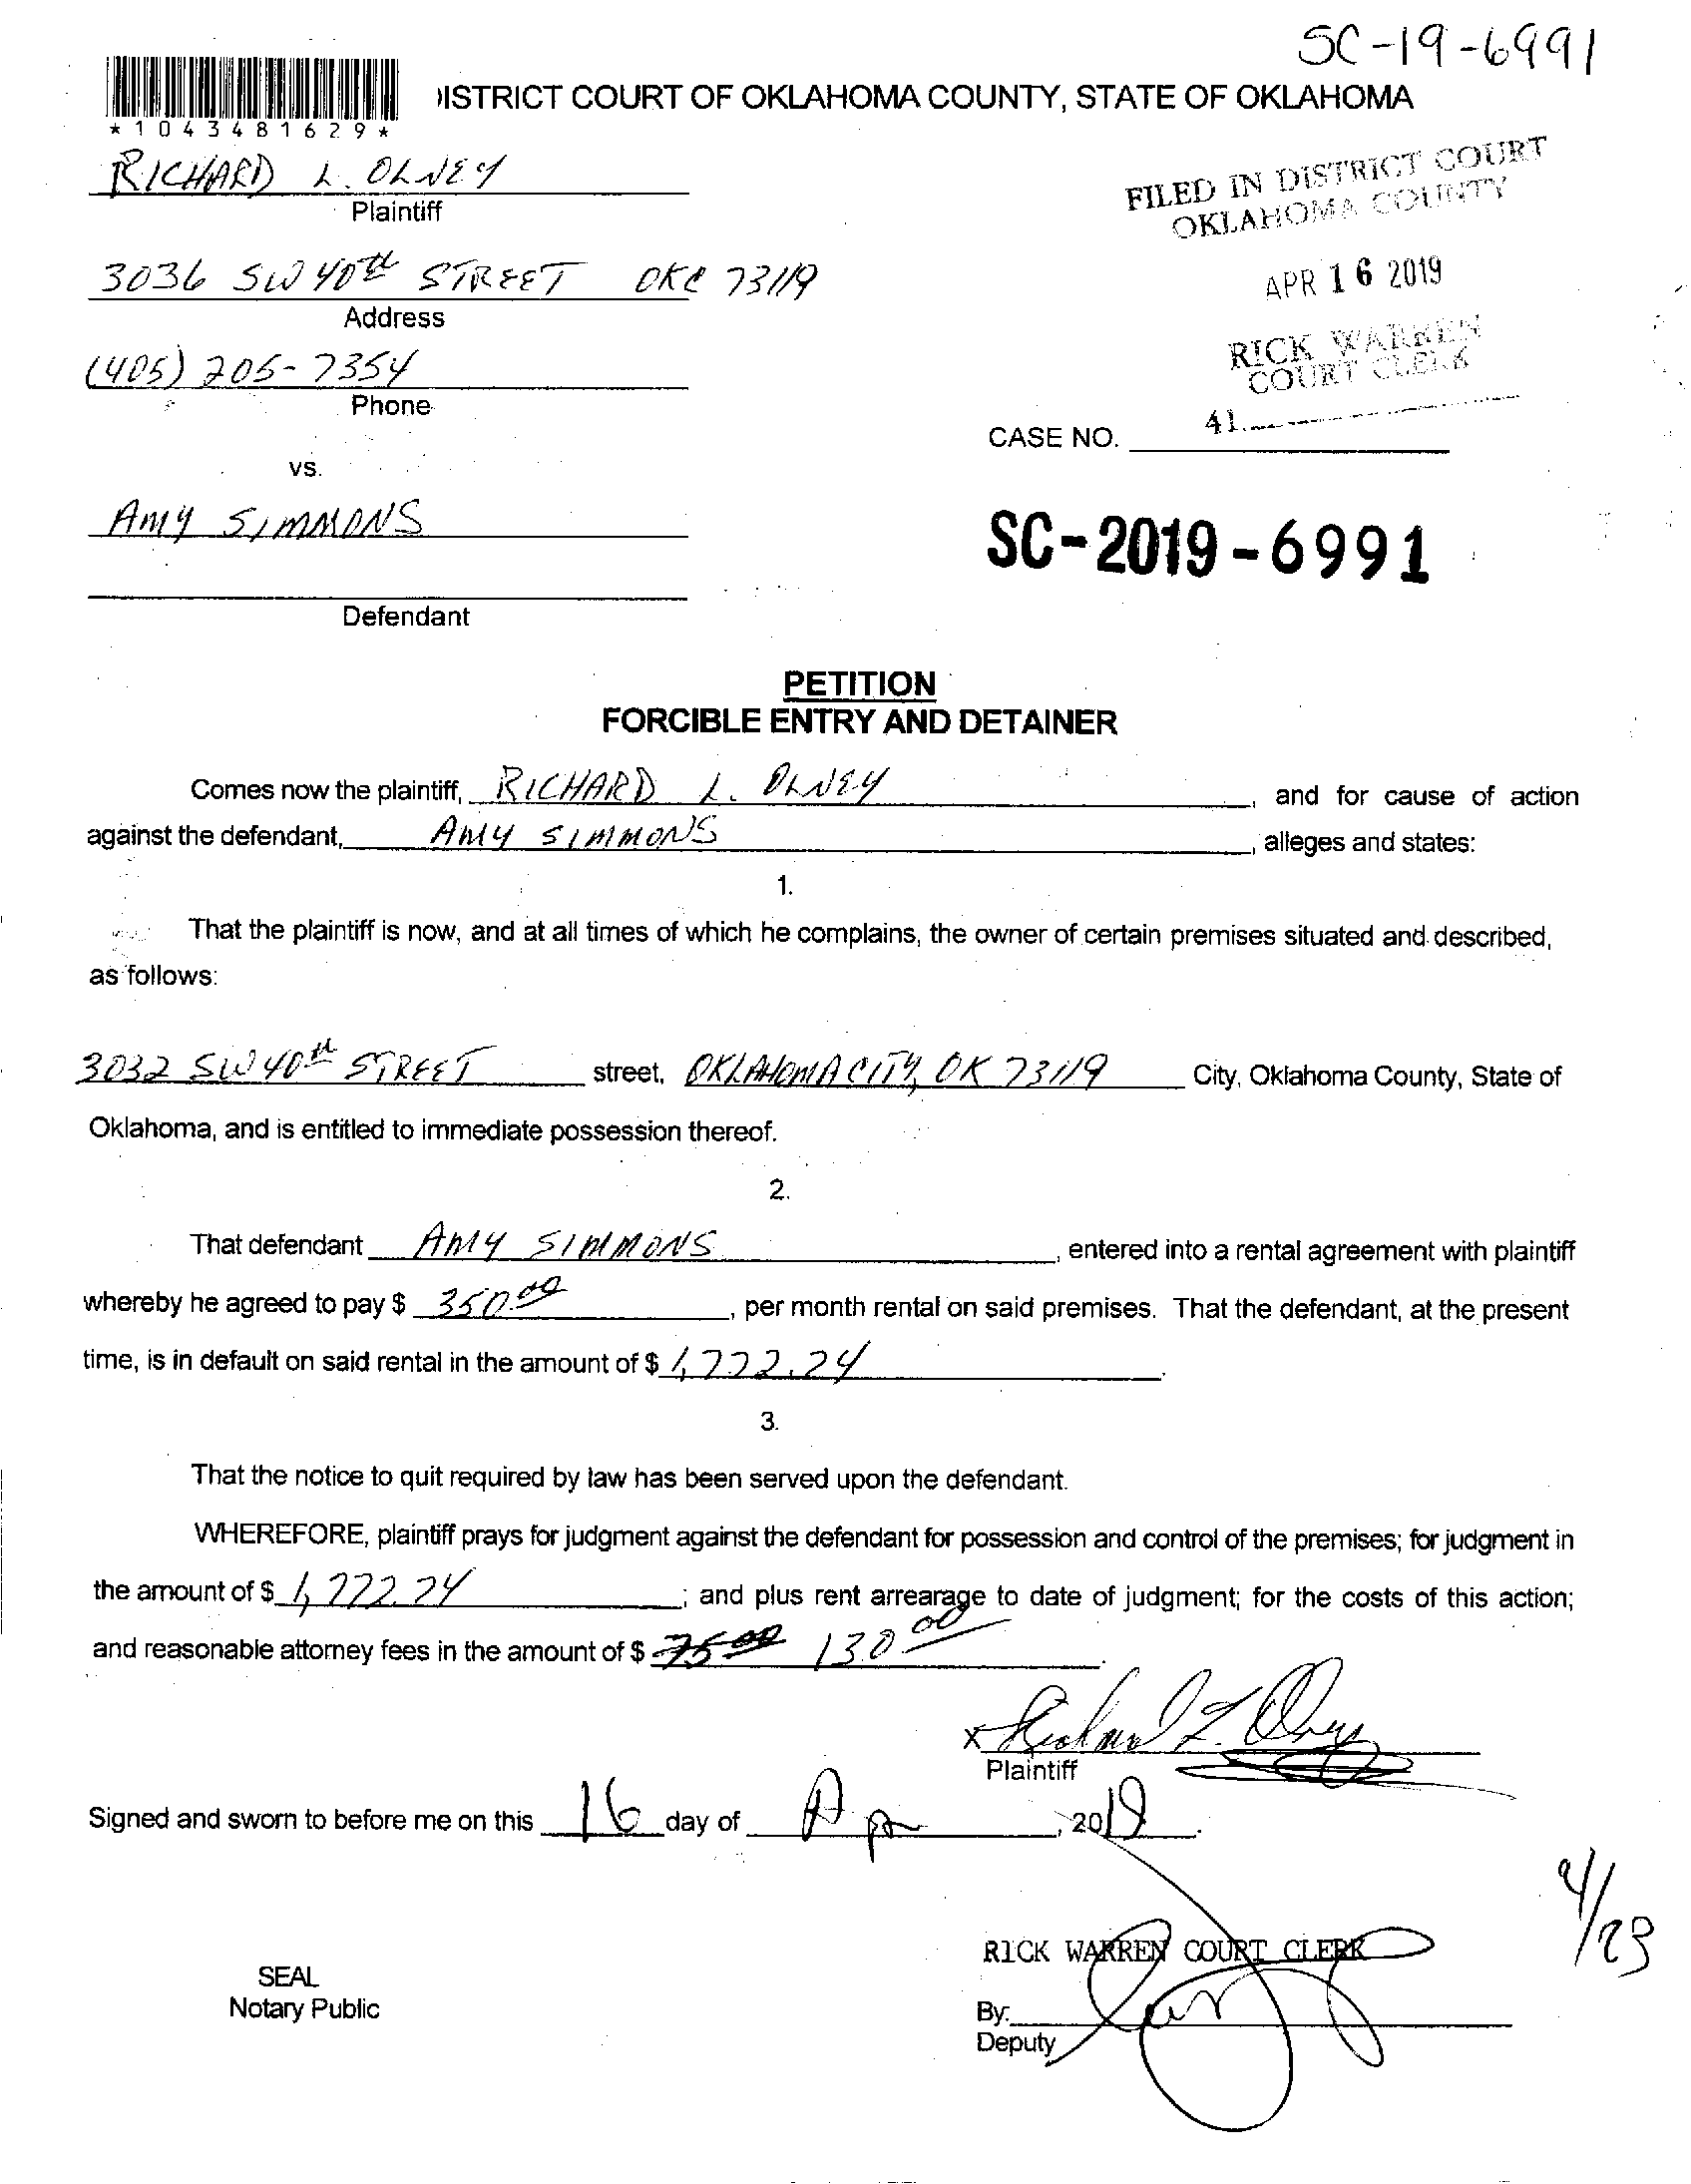 SC-19-6991
ISTRICT COURT OF OKLAHOMA COUNTY, STATE OF OKLAHOMA
*1043481629*
RICHARD L. OLNEY
Plaintiff
FILED IN DISTRICT COURT
OKLAHOMA COUNTY
3036 SW 40TH STREET OKC 73119
Address
APR 16 2019
RICK WARREN
COURT CLERK
(405) 205-7354
Phone
41
CASE NO.
vs.
AMY SIMMONS
SC-2019-6991
Defendant
PETITION
FORCIBLE ENTRY AND DETAINER
Comes now the plaintiff, RICHARD L. OLNEY, and for cause of action
against the defendant, AMY SIMMONS, alleges and states:
1.
That the plaintiff is now, and at all times of which he complains, the owner of certain premises situated and described,
as follows:
3032 SW 40TH STREET street, OKLAHOMA CITY, OK 73119 City, Oklahoma County, State of
Oklahoma, and is entitled to immediate possession thereof.
2.
That defendant AMY SIMMONS, entered into a rental agreement with plaintiff
whereby he agreed to pay $ 350.00, per month rental on said premises. That the defendant, at the present
time, is in default on said rental in the amount of $ 1,772.24.
3.
That the notice to quit required by law has been served upon the defendant.
WHEREFORE, plaintiff prays for judgment against the defendant for possession and control of the premises; for judgment in
the amount of $ 1,772.24; and plus rent arrearage to date of judgment; for the costs of this action;
and reasonable attorney fees in the amount of $ 75.00 130.00.
x Richard L. Olney
Plaintiff
Signed and sworn to before me on this 16 day of Apr, 2019.
4/23
RICK WARREN COURT CLERK
SEAL
Notary Public
By:
Deputy